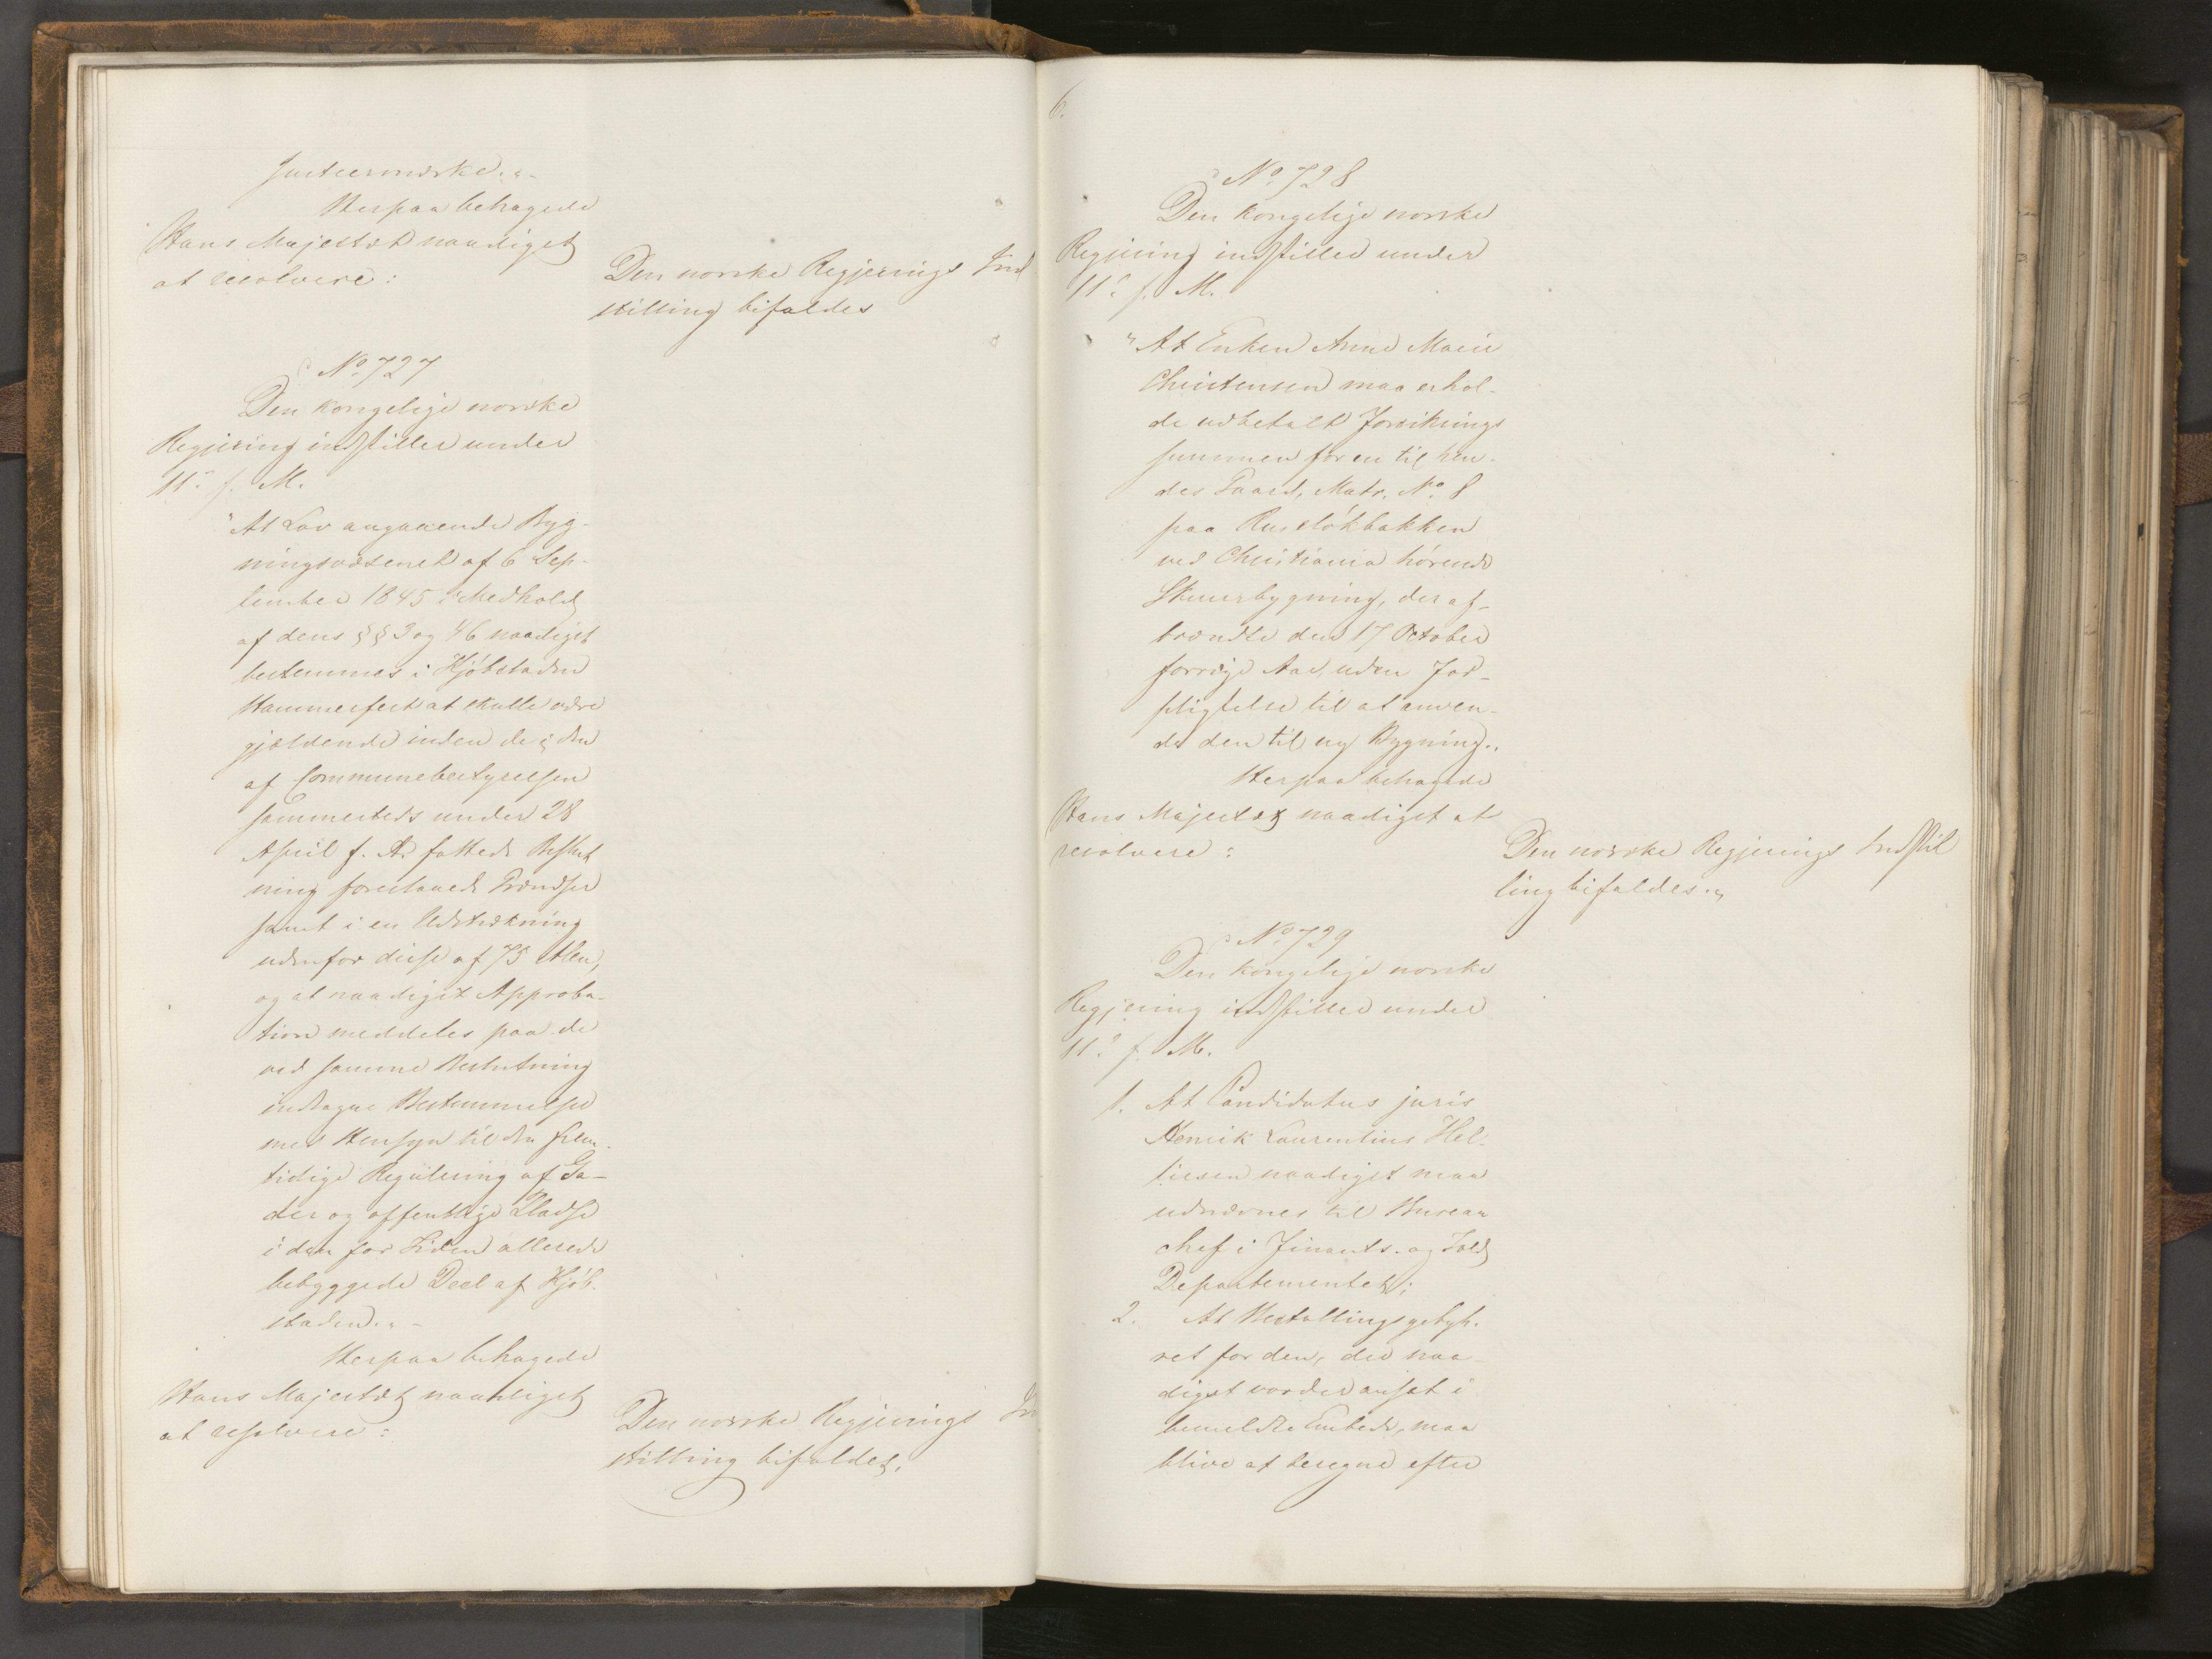 Justeermærke.„-
Herpaa behagede
Hans Majestæt naadigst
at resolvere:
Den norske Regjerings Ind
stilling bifaldes
No 727
Den kongelige norske
Regjering indstiller under
11te f. M.
"At Lov angaaende Byg-
ningsvæsenet af 6 Sep-
tember 1845 i Medhold
af dens §§ 3 og 46 naadigst
bestemmes i Kjöbstaden
Hammerfest at skulle være
gjældende inden de i den
af Communebestyrelsen
sammesteds under 28
April f. A. fattede Beslut
ning foreslaaede Grændser
samt i en Udstrækning
udenfor disse af 75 Alen,
og at naadigst Approba-
tion meddeles paa de
ved samme Beslutning
indtagne Bestemmelser
med Hensyn til den frem-
tidige Regulering af Ga-
der og offentlige Pladse
i den for Tiden allerede
bebyggede Deel af Kjöb-
staden.„-
Herpaa behagede
Hans Majestæt naadigst
at resolvere:
Den norske Regjerings In
stilling bifaldes.
6.
No 728
Den kongelige norske
Regjering indstiller under
11te f. M.
"At Enken Anne Marie
Christensen maa erhol-
de udbetalt Forsikrings
summen for en til hen-
des Gaard, Matr. No 8
paa Ruselökbakken
ved Christiania hörende
Skuurbygning, der af-
brændte den 17 October
forrige Aar, uden For-
pligtelse til at anven-
de den til ny Bygning.„
Herpaa behagede
Hans Majestæt naadigst at
resolvere:
Den norske Regjerings Indstil
ling bifaldes.„
No 729
Den kongelige norske
Regjering indstiller under
11te f. M.
1. At Candidatus juris
Henrik Laurentius Hel-
liesen naadigst maa
udnævnes til Bureau
chef i Finants- og Told
Departementet;
2. At Bestallingsgebyh-
ret for den, der naa-
digst vorder ansat i
bemeldte Embede, maa
blive at beregne efter